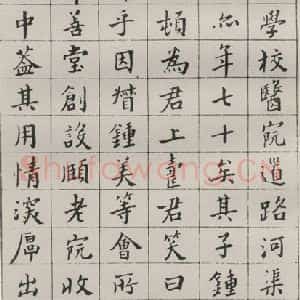 學校醫院道路河渠
年七十矣其子鍾
頓為君上壽君笑曰
乎因鍾美等會所
善堂創設頤老院收
中蓋其用情深厚出
Shufawang.CN